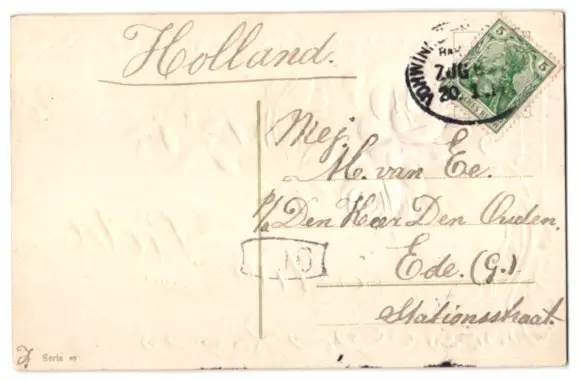 Holland.
5 5
VOHWINK
BAH
ZUG
20.
Mej.
M. van Ee.
P/a Den Heer Den Ouden.
Ede. (G.)
Stationsstraat.
Serie